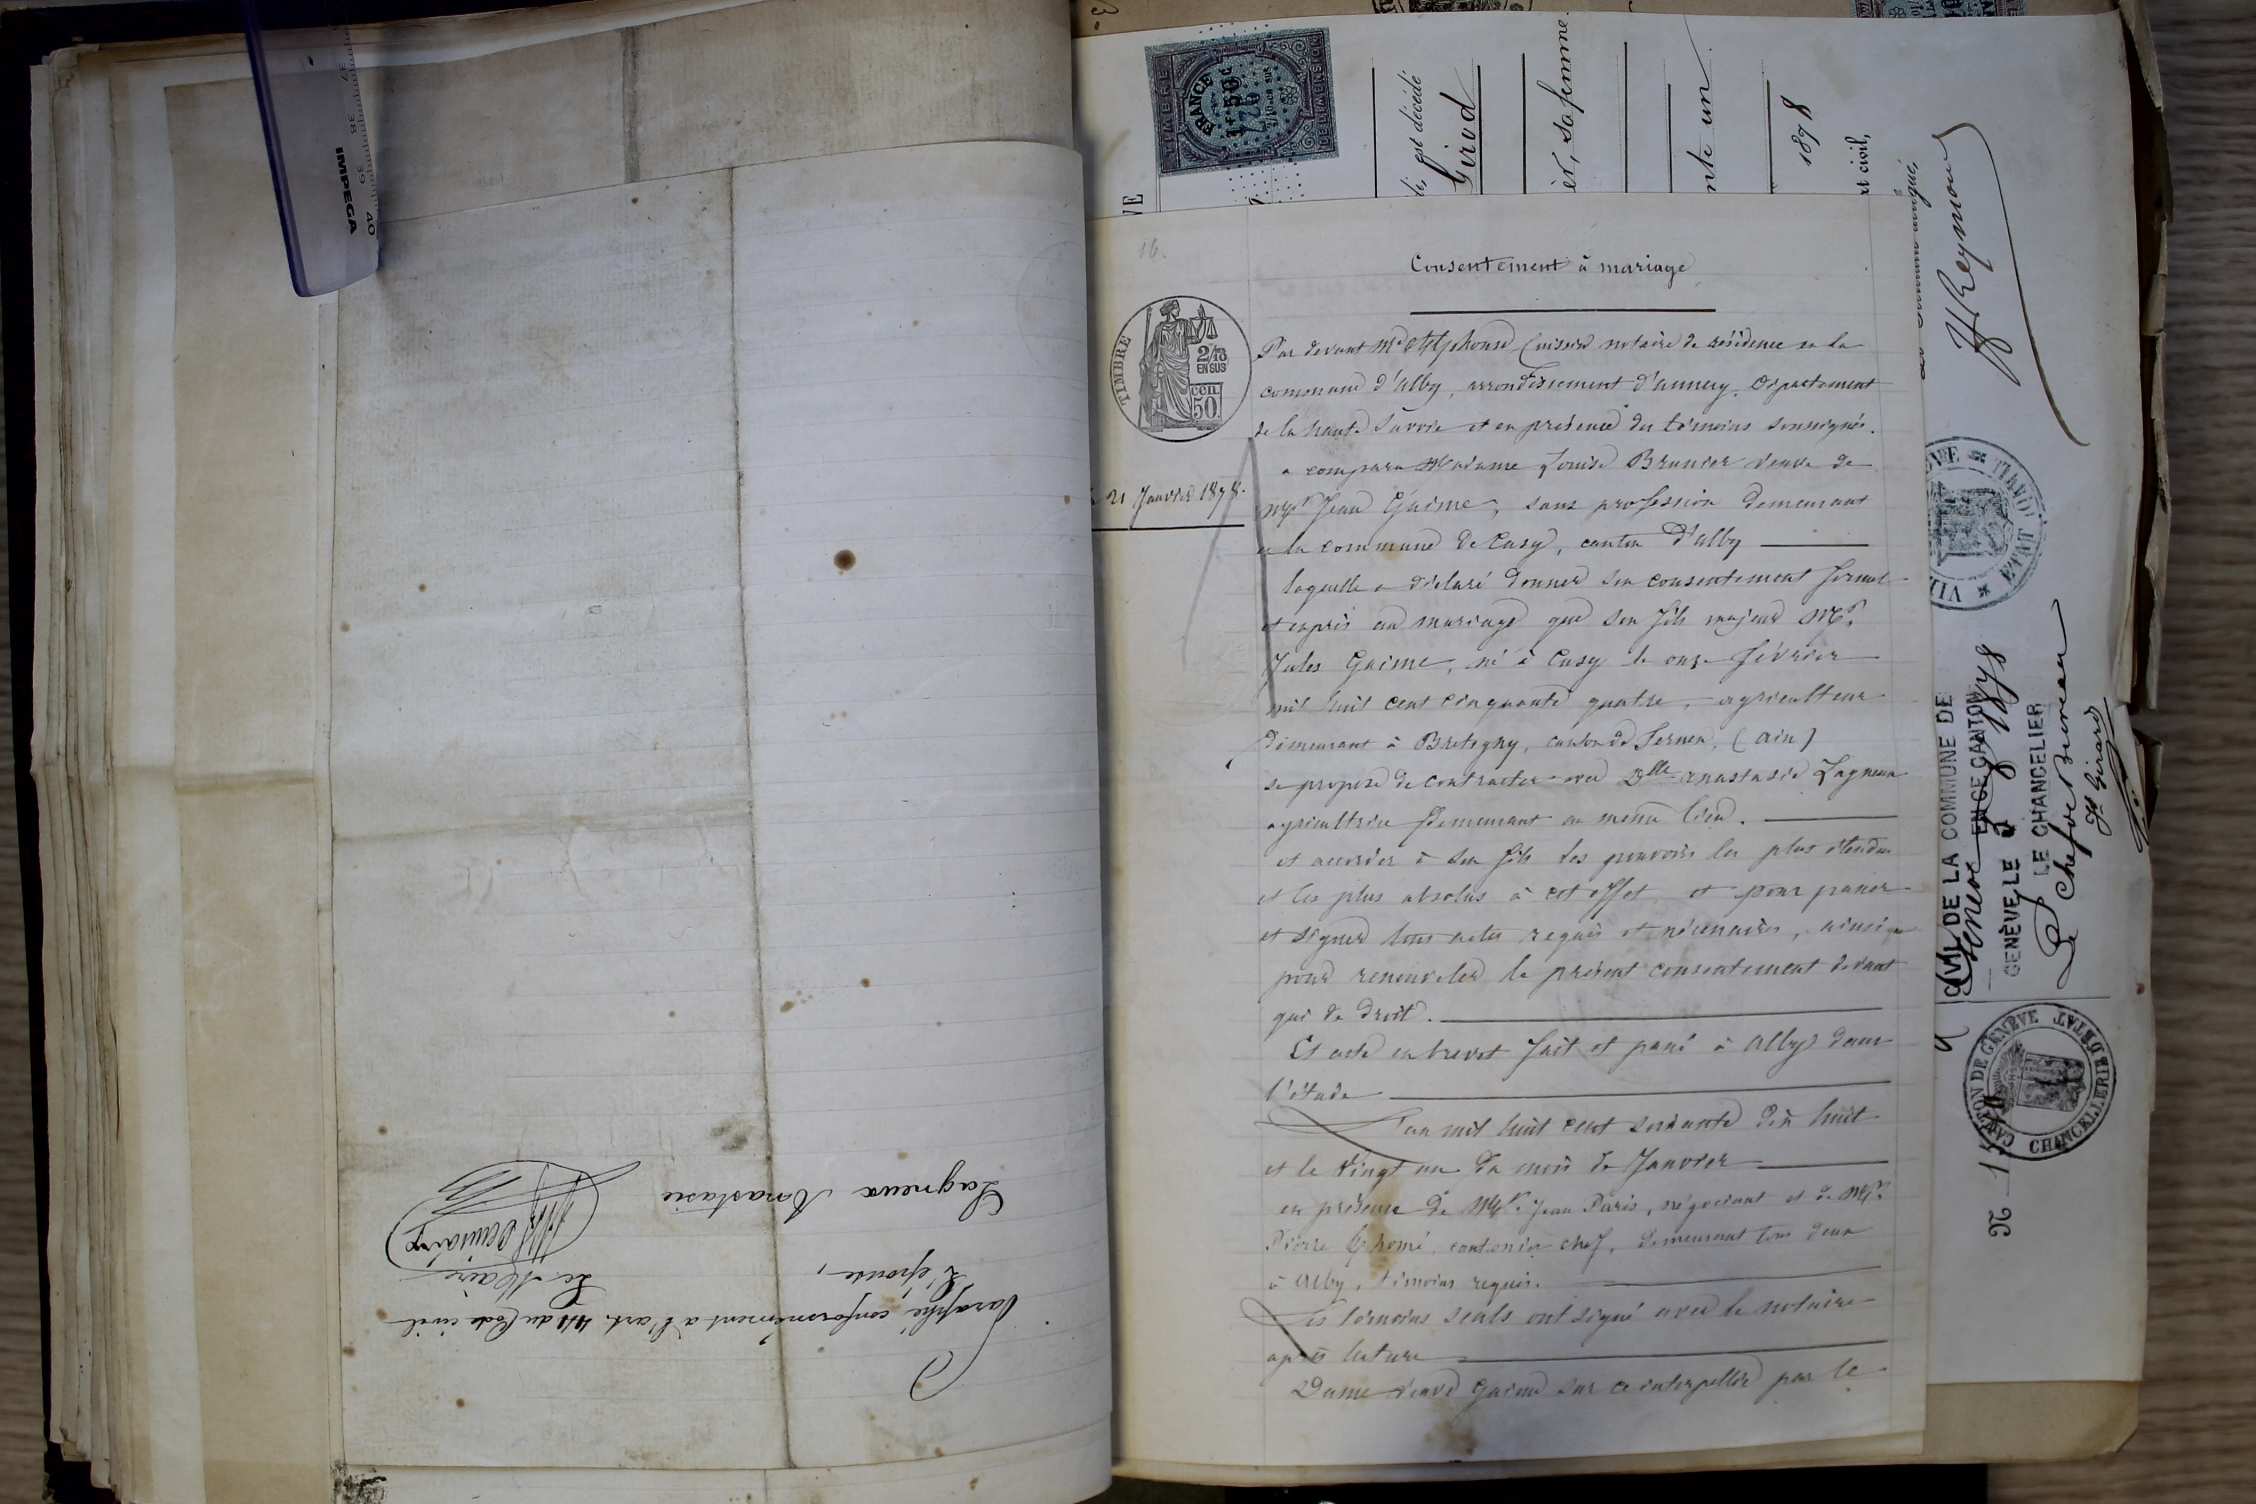 IMPEGA
37 38 39 40
Paraphé conformément à l'art. 44 du Code civil
L'épouse,
Le Maire
Lagneux Anastasie
16.
TIMBRE
2/10 EN SUS
cen. 50
21 Janvier 1878.
Consentement à mariage
Par devant Me Alphonse notaire de résidence en la
commune d'Alby, arrondissement d'annecy, Département
de la haute Savoie et en présence des témoins soussignés.
a comparu Madame Louise Brunier veuve de
Mr Jean Gaime, sans profession demeurant
en la commune de Cusy, canton d'alby
laquelle a déclaré donner son consentement formel
et exprès au mariage que son fils majeur Mr.
Jules Gaime, né à Cusy le onze février
mil huit cent cinquante quatre, agriculteur
demeurant à Bretigny, canton de Ferney, (ain)
se propose de contracter avec Dlle anastasie Lagneux
agricultrice demeurant au même lieu.
et accorder à son fils les pouvoirs les plus étendus
et les plus absolus à cet effet, et pour passer
et signer tous actes requis et nécessaires, ainsi
pour renouveler le présent consentement devant
qui de droit.
Et acte en brevet fait et passé à Alby dans
l'étude
L'an mil huit cent soixante dix huit
et le vingt un du mois de Janvier
en présence de Mr. Jean Paris, négociant et de Mr.
Pierre Thomé, cantonnier chef, demeurant tous deux
à Alby, témoins requis.
Les témoins seuls ont signé avec le notaire
après lecture
Dame veuve Gaime sur ce interpellée par le
TIMBRE
FRANCE
1 fr 50 c
2/10 en sus
DE DIMENSION
est décédé
Girod
sa femme
1878
civil,
CIVIL DE LA COMMUNE DE
Genève EN CE CANTON
GENÈVE, LE 1878
LE CHANCELIER
Le chef de Bureau
CANTON DE GENÈVE
CHANCELLERIE D'ETAT